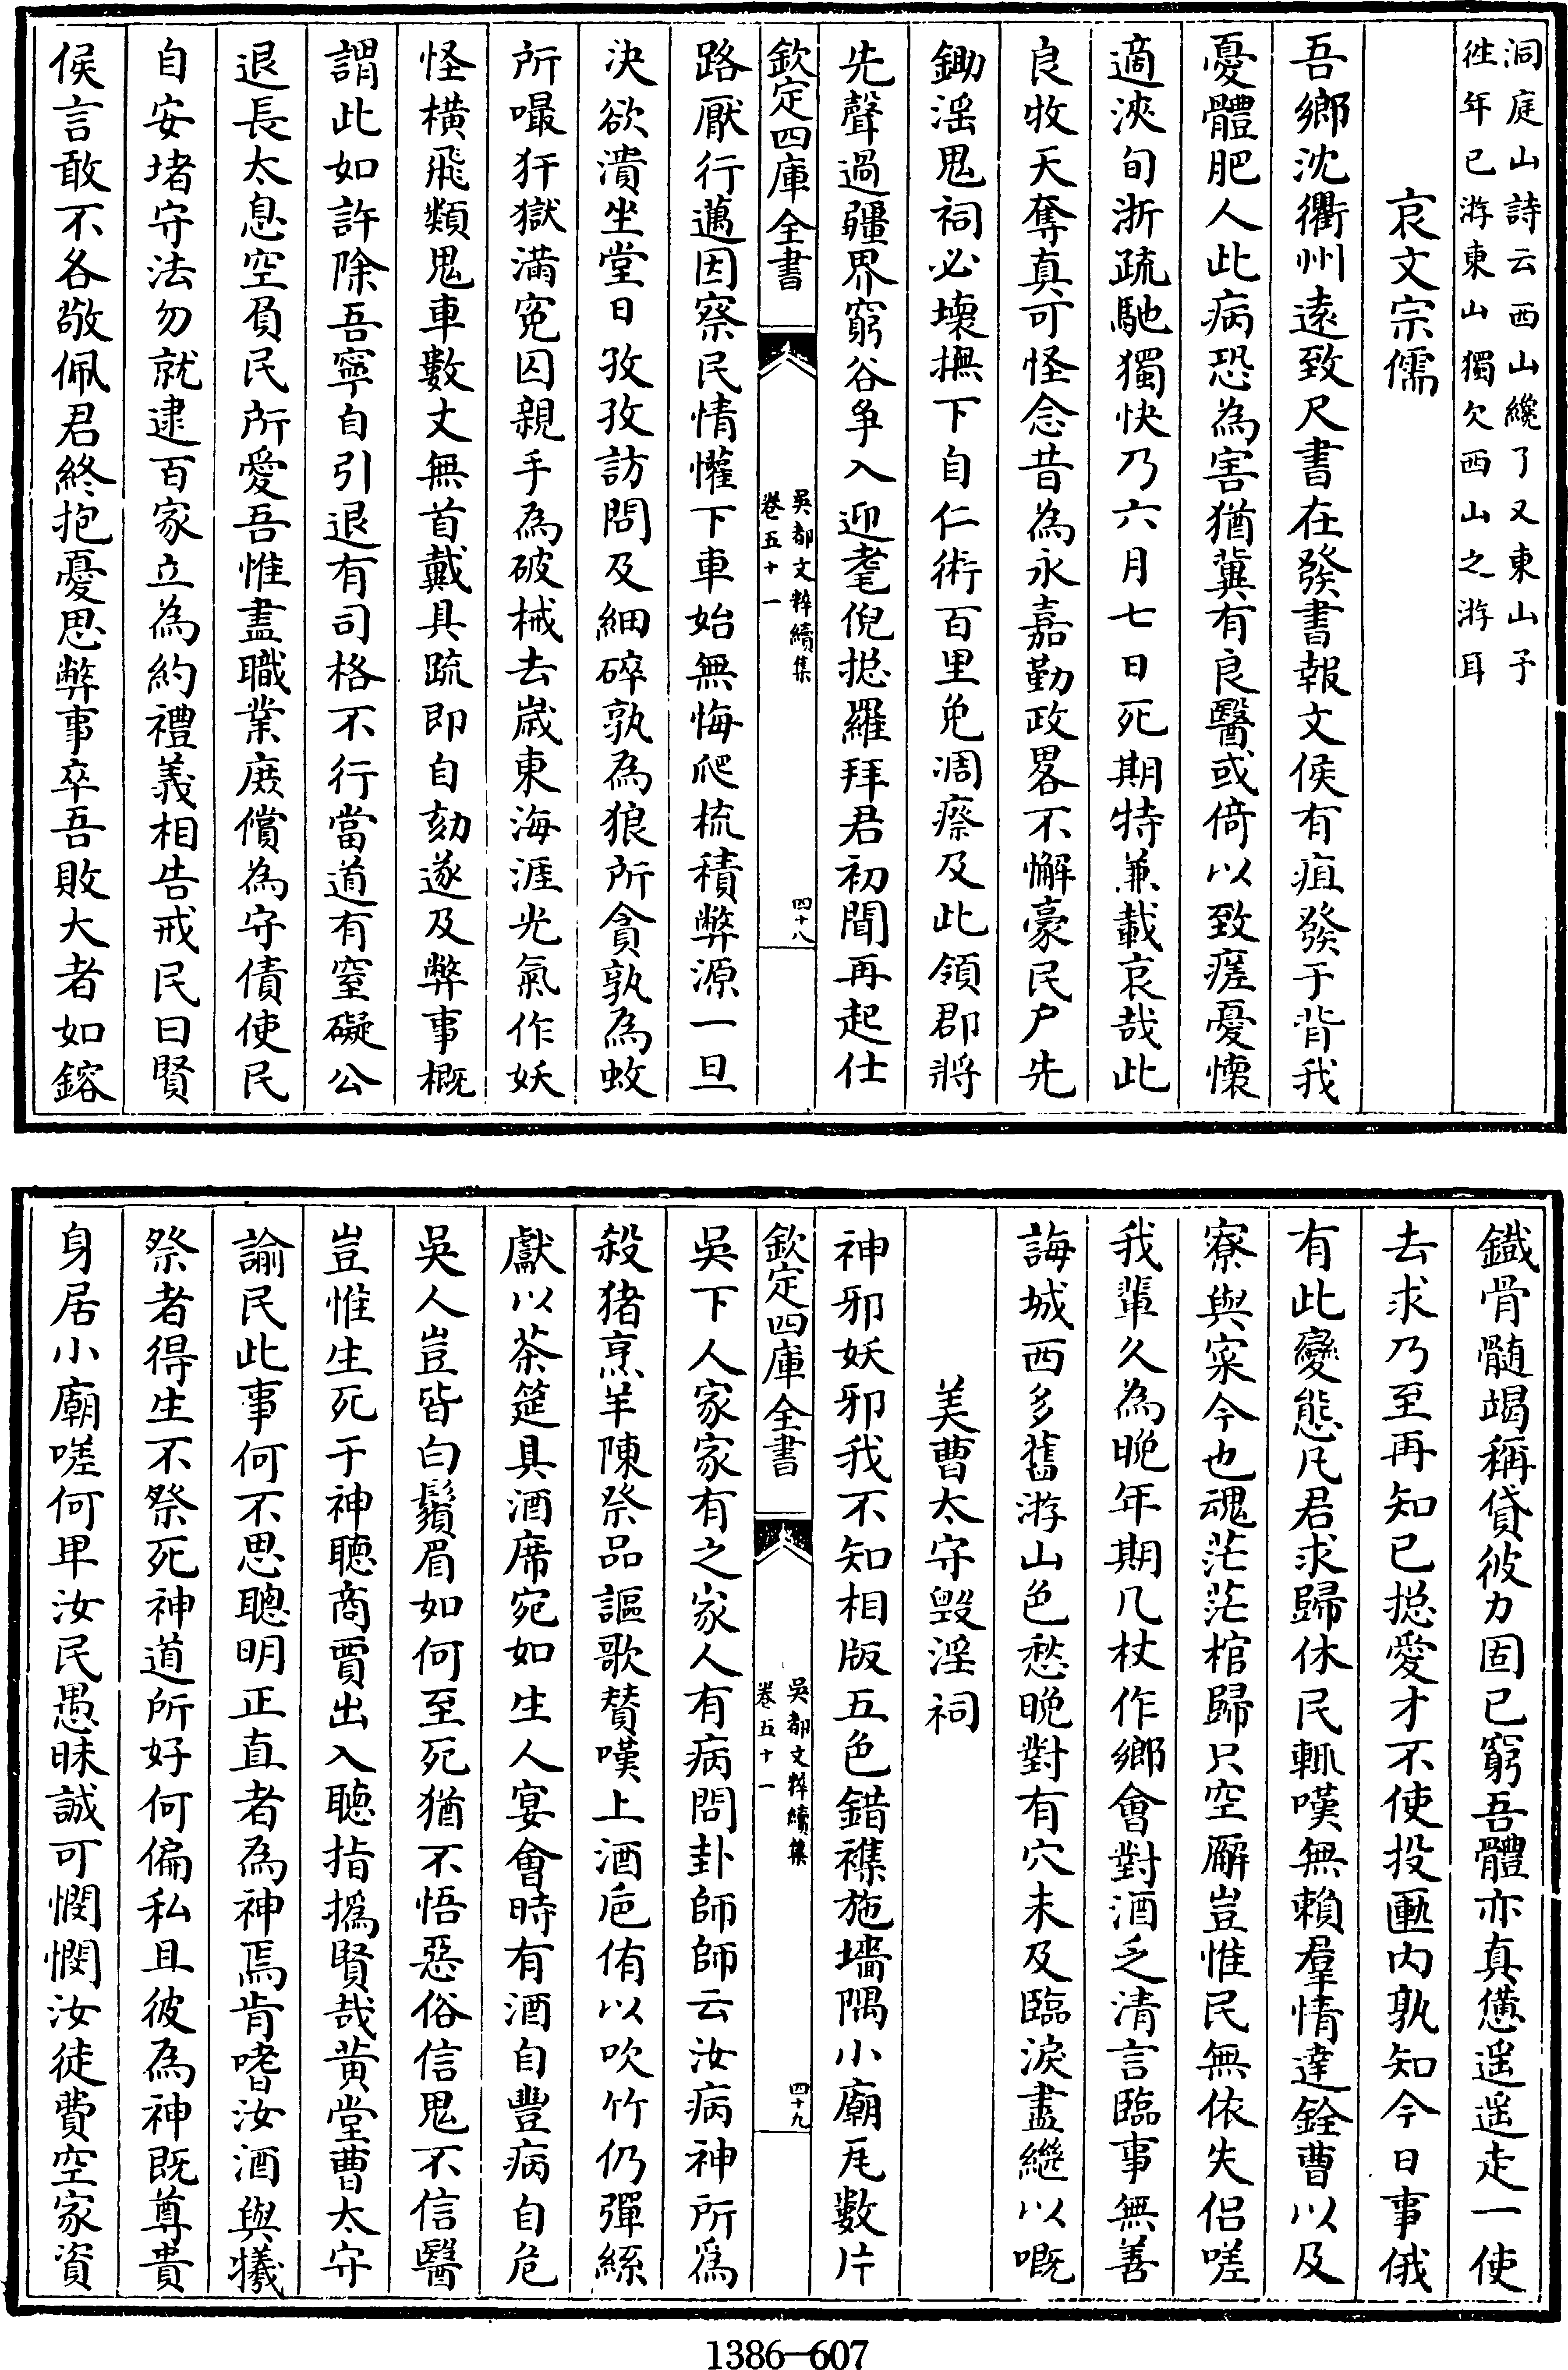 洞庭山詩云西山纔了又東山予
徃年已游東山獨欠西山之游耳
哀文宗儒
吾鄉沈衢州遠致尺書在發書報文侯有疽發于背我
憂體肥人此病恐為害猶冀有良醫或倚以致瘥憂懷
適浹旬浙疏馳獨快乃六月七日死期特兼載哀哉此
良牧天奪真可怪念昔為永嘉勤政畧不懈豪民户先
鋤滛鬼祠必壞撫下自仁術百里免凋瘵及此領郡將
先聲過疆界窮谷争入迎耄倪捴羅拜君初聞再起仕
欽定四庫全書
吳都文粹續集
卷五十一
四十八
路厭行邁因察民情懽下車始無悔爬梳積弊源一旦
決欲潰坐堂日孜孜訪問及細碎孰為狼所貪孰為蚊
所嘬犴獄滿寃囚親手為破械去嵗東海涯光氣作妖
怪橫飛類鬼車數丈無首戴具疏即自劾遂及弊事概
謂此如許除吾寧自引退有司格不行當道有窒礙公
退長太息空負民所愛吾惟盡職業庻償為守債使民
自安堵守法勿就逮百家立為約禮義相告戒民曰賢
侯言敢不各敬佩君終抱憂思弊事卒吾敗大者如鎔
鐵骨髓竭稱貸彼力固已窮吾體亦真憊遥遥走一使
去求乃至再知已捴愛才不使投匭内孰知今日事俄
有此變態凡君求歸休民輒嘆無賴羣情達銓曹以及
寮與寀今也魂茫茫棺歸只空廨豈惟民無依失侣嗟
我輩久為晚年期几杖作鄉會對酒乏清言臨事無善
誨城西多舊游山色愁晚對有穴未及臨淚盡繼以嘅
美曹太守毁淫祠
神邪妖邪我不知相版五色錯襍施墻隅小廟瓦數片
欽定四庫全書
吳都文粹續集
卷五十一
四十九
吳下人家家有之家人有病問卦師師云汝病神所為
殺猪烹羊陳祭品謳歌賛嘆上酒巵侑以吹竹仍彈絲
獻以茶筵具酒席宛如生人宴會時有酒自豐病自危
吳人豈皆白鬚眉如何至死猶不悟惡俗信鬼不信醫
豈惟生死于神聽商賈出入聽指撝賢哉黄堂曹太守
諭民此事何不思聰明正直者為神焉肯嗜汝酒與犧
祭者得生不祭死神道所好何偏私且彼為神既尊貴
身居小廟嗟何卑汝民愚昧誠可憫憫汝徒費空家資
1386—607